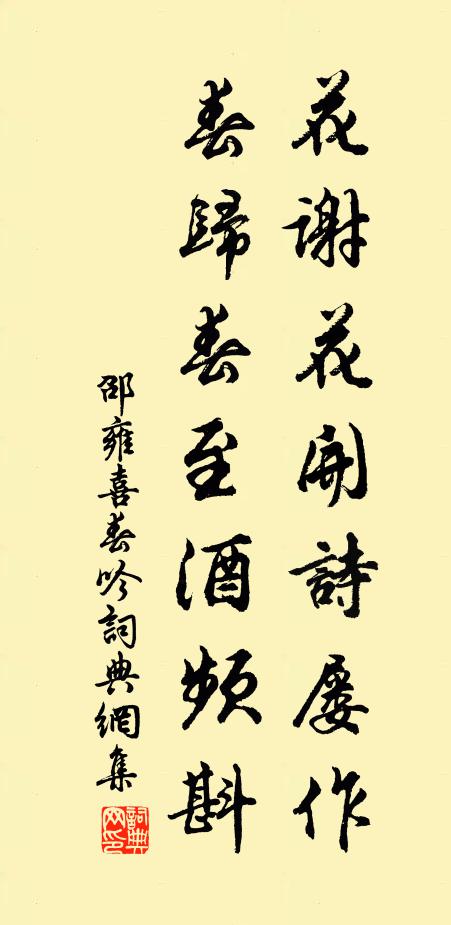 花謝花開詩屢作
春歸春至酒頻斟
邵雍喜春吟詞典網集
詞典網印